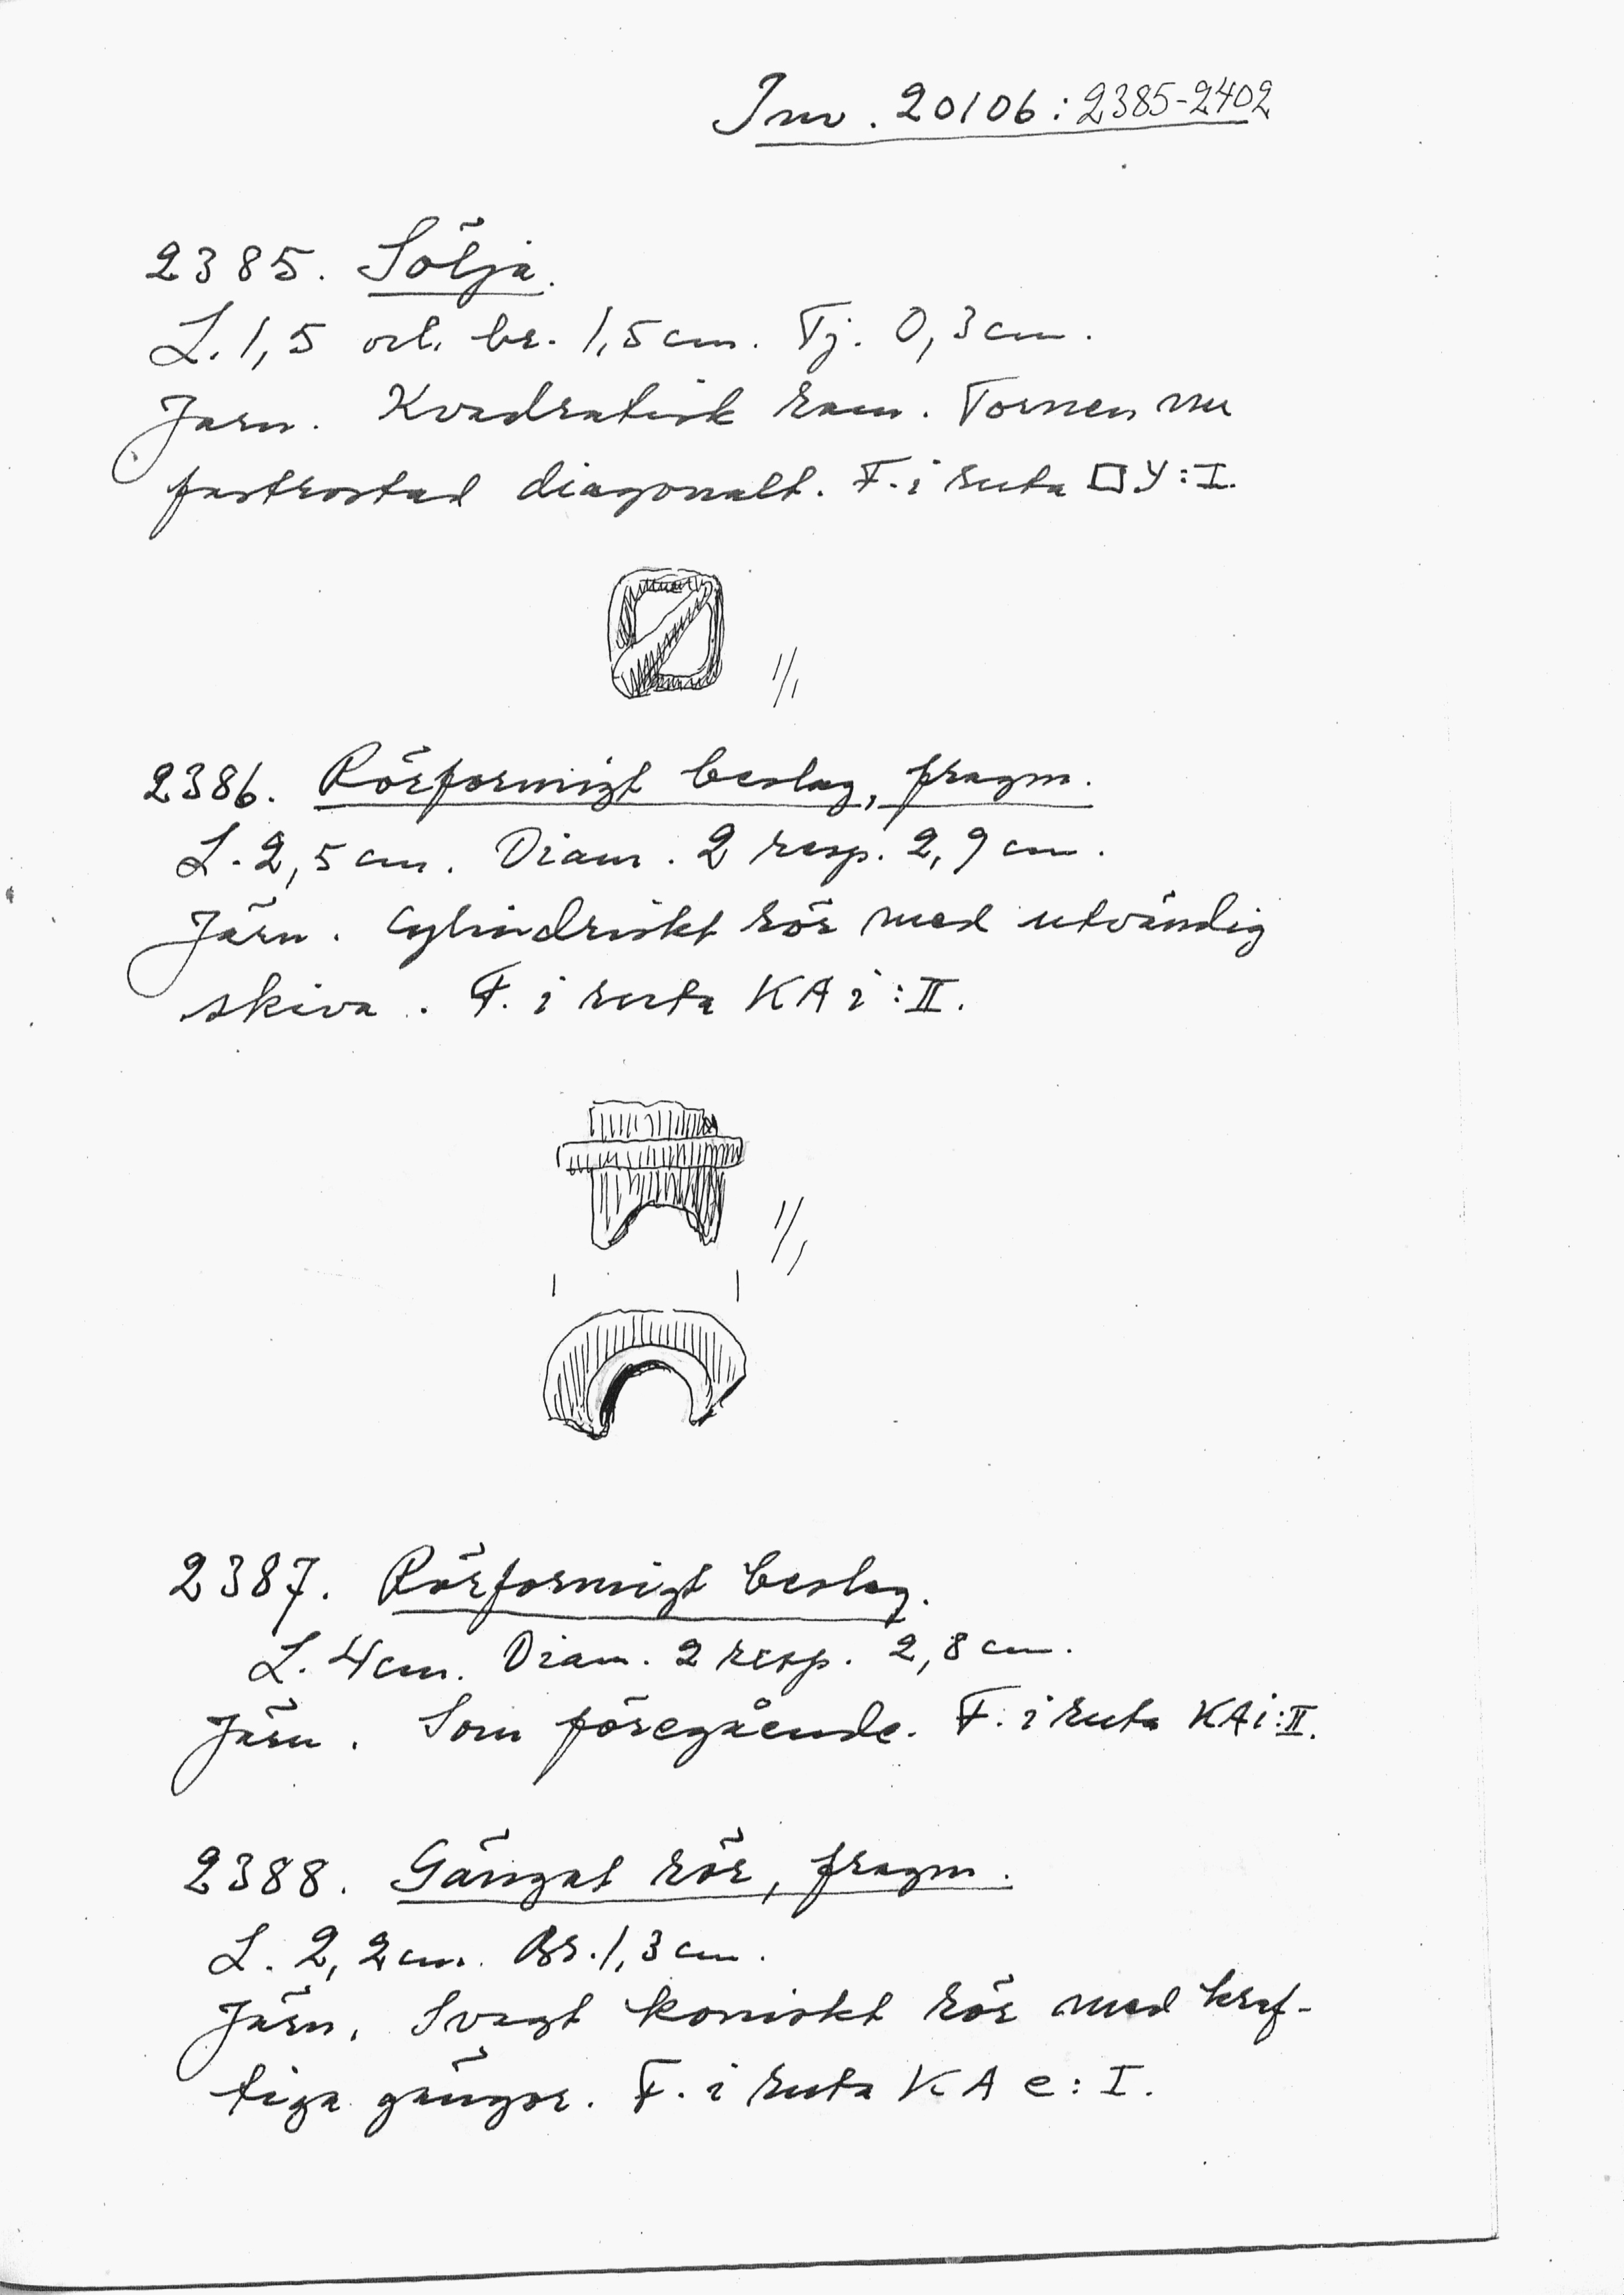 Inv. 20106:2385-2402
2385. Sölja.
L. 1,5 och br. 1,5 cm. Tj. 0,3 cm.
Järn. Kvadratisk ram. Tornen nu
fastrostad diagonalt. F. i ruta □Y:I.
1/1
2386. Rörformigt beslag, fragm.
L. 2,5 cm. Diam. 2 resp. 2,9 cm.
Järn. Cylindriskt rör med utvändig
skiva. F. i ruta KA i:II.
1/1
2387. Rörformigt beslag.
L. 4 cm. Diam. 2 resp. 2,8 cm.
Järn. Som föregående. F. i ruta KA i:II.
2388. Gängat rör, fragm.
L. 2,2 cm. Br. 1,3 cm.
Järn. Svagt koniskt rör med kraf-
tiga gängor. F. i ruta KA e:I.